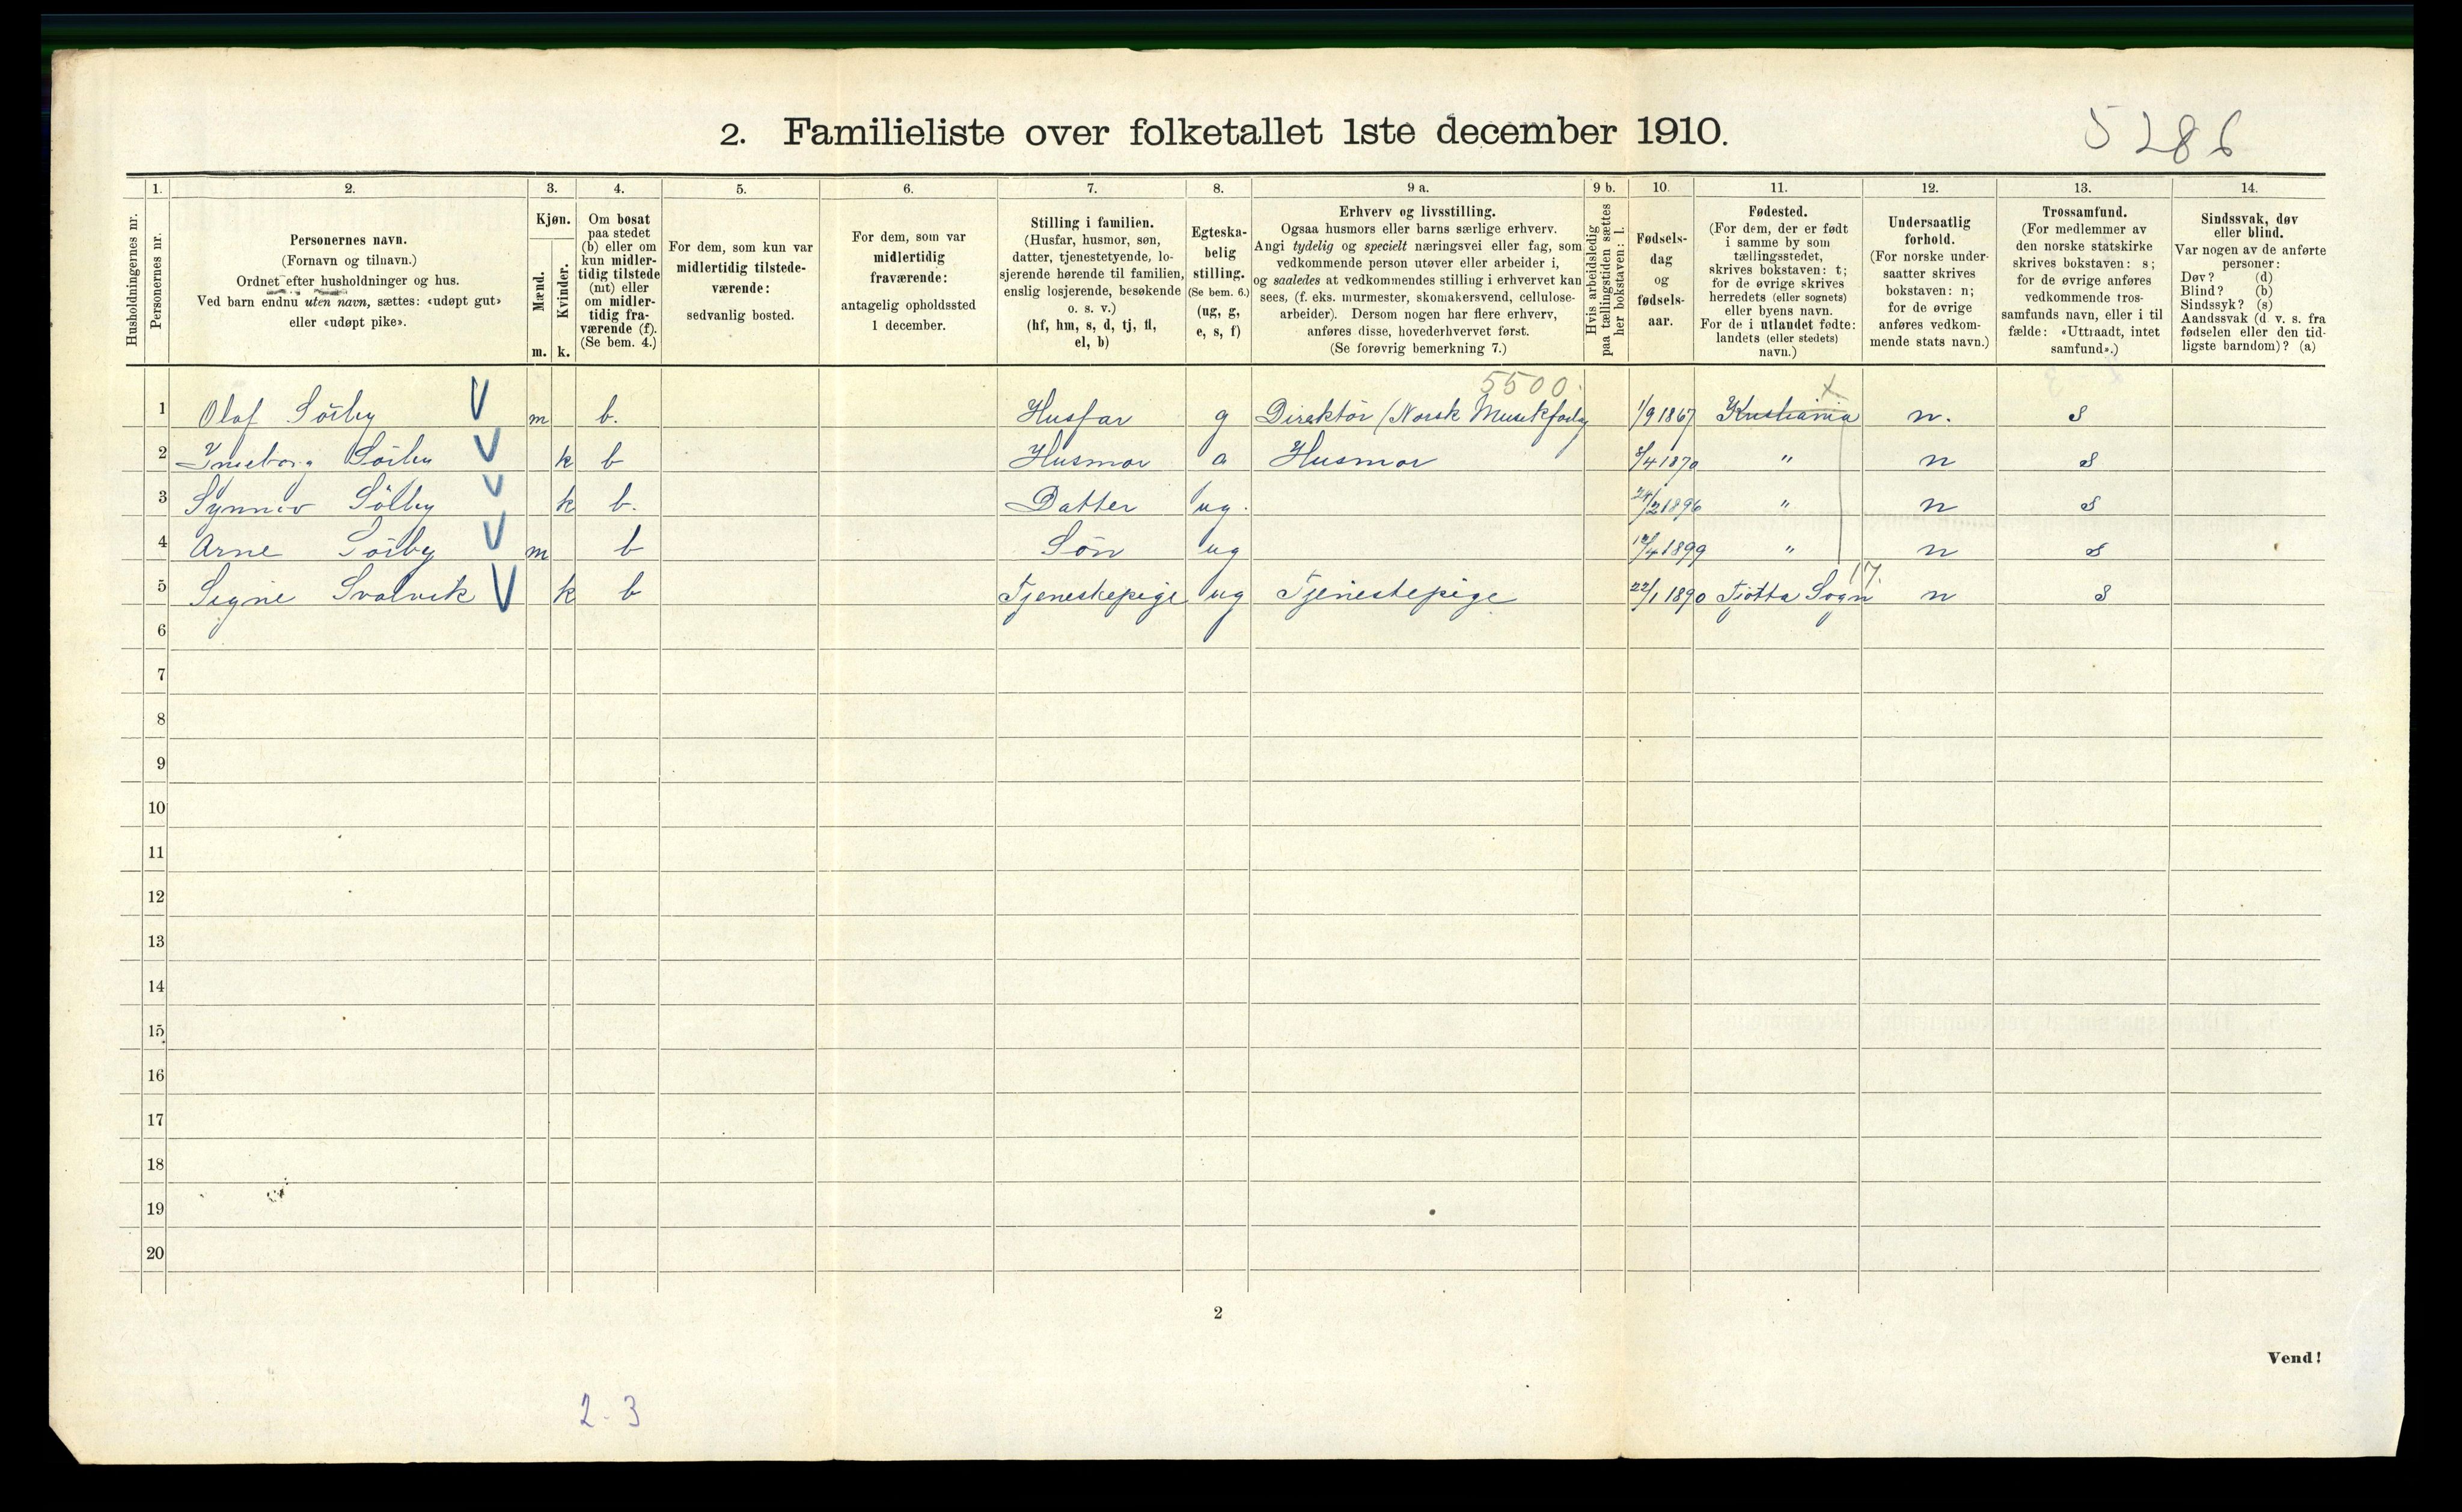 2. Familieliste over folketallet 1ste december 1910.
5286
Husholdningernes nr.
1.
Personernes nr.
2.
Personernes navn.
(Fornavn og tilnavn.)
Ordnet efter husholdninger og hus.
Ved barn endnu uten navn, sættes: «udøpt gut»
eller «udøpt pike».
3.
Kjøn.
Mænd.
Kvinder.
m. k.
4.
Om bosat
paa stedet
(b) eller om
kun midler-
tidig tilstede
(mt) eller
om midler-
tidig fra-
værende (f).
(Se bem. 4.)
5.
For dem, som kun var
midlertidig tilstede-
værende:
sedvanlig bosted.
6.
For dem, som var
midlertidig
fraværende:
antagelig opholdssted
1 december.
7.
Stilling i familien.
(Husfar, husmor, søn,
datter, tjenestetyende, lo-
sjerende hørende til familien,
enslig losjerende, besøkende
o. s. v.)
(hf, hm, s, d, tj, fl,
el, b)
8.
Egteska-
belig
stilling.
(Se bem. 6.)
(ug, g,
e, s, f)
9 a.
Erhverv og livsstilling.
Ogsaa husmors eller barns særlige erhverv.
Angi tydelig og specielt næringsvei eller fag, som
vedkommende person utøver eller arbeider i,
og saaledes at vedkommendes stilling i erhvervet kan
sees, (f. eks. murmester, skomakersvend, cellulose-
arbeider). Dersom nogen har flere erhverv,
anføres disse, hovederhvervet først.
(Se forøvrig bemerkning 7.)
9 b.
Hvis arbeidsledig
paa tællingstiden sættes
her bokstaven: l.
10.
Fødsels-
dag
og
fødsels-
aar.
11.
Fødested.
(For dem, der er født
i samme by som
tællingsstedet,
skrives bokstaven: t;
for de øvrige skrives
herredets (eller sognets)
eller byens navn.
For de i utlandet fødte:
landets (eller stedets)
navn.)
12.
Undersaatlig
forhold.
(For norske under-
saatter skrives
bokstaven: n;
for de øvrige
anføres vedkom-
mende stats navn.)
13.
Trossamfund.
(For medlemmer av
den norske statskirke
skrives bokstaven: s;
for de øvrige anføres
vedkommende tros-
samfunds navn, eller i til
fælde: «Uttraadt, intet
samfund».)
14.
Sindssvak, døv
eller blind.
Var nogen av de anførte
personer:
Døv? (d)
Blind? (b)
Sindssyk? (s)
Aandssvak (d. v. s. fra
fødselen eller den tid-
ligste barndom)? (a)
5500. x
1 Olaf Sörby V m b. Husfar g Direktör (Norsk Musikforlag 1/9 1867 Kristiania n. s
2 Ingeborg Sörby V k b Husmor Husmor /4 1870 " n s
3 Synnöv Sölby V k b. Datter ug. 24/2 1896 " n s
4 Arne Sörby V m b Sön ug /4 1899 " n s
17.
5 Signe Svalvik V k b Tjenestepige ug Tjenestepige 22/1 1890 Tjötta Sogn n s
6
7
8
9
10
11
12
13
14
15
16
17
18
19
20
2
Vend!
2-3